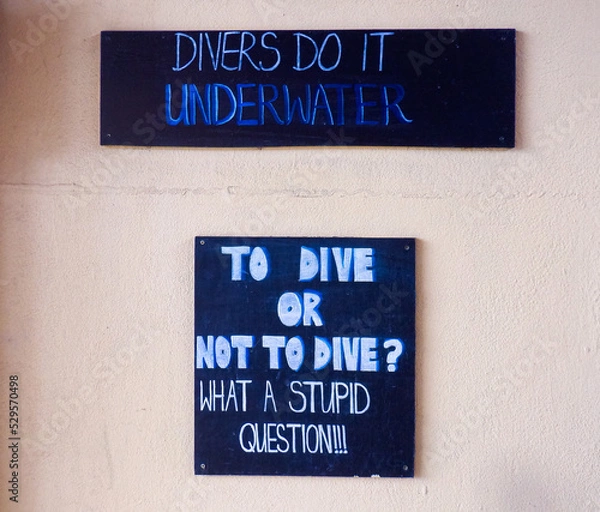 DIVERS DO IT
UNDERWATER
TO DIVE
OR
NOT TO DIVE?
WHAT A STUPID
QUESTION!!!
Adobe Stock | #529570498